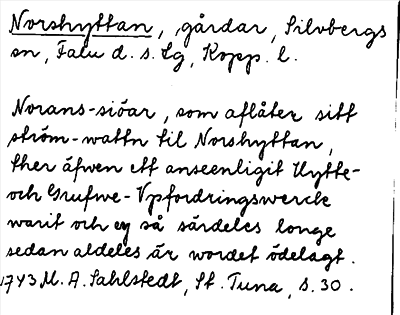 Norshyttan, gårdar, Silvbergs
sn, Falu d. s. lg, Kopp. l.
Norans-siöar, som aflåter sitt
ström-wattn til Norshyttan,
ther äfwen ett anseenligit Hytte-
och Grufwe-Vpfordringswerck
warit och ey så särdeles longe
sedan aldeles är wordet ödelagt.
1743 M. A. Sahlstedt, St. Tuna, s. 30.